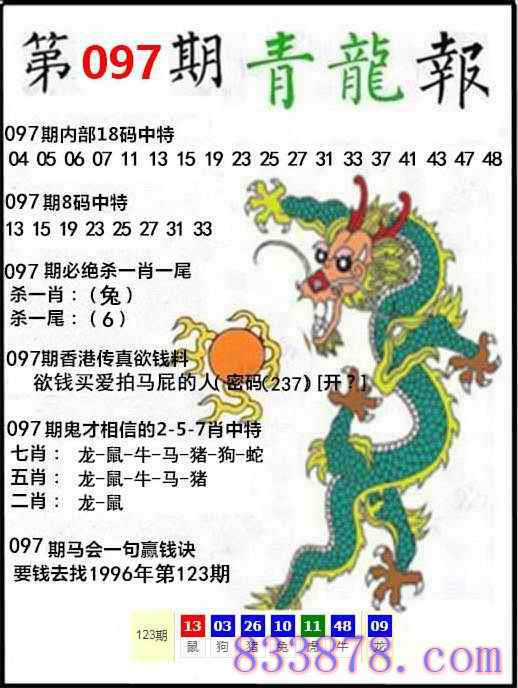 第097期青龍報
097期内部18码中特
04 05 06 07 11 13 15 19 23 25 27 31 33 37 41 43 47 48
097期8码中特
13 15 19 23 25 27 31 33
097期必绝杀一肖一尾
杀一肖：（兔）
杀一尾：（6）
097期香港传真欲钱料
欲钱买爱拍马屁的人(密码(237)[开？]
097期鬼才相信的2-5-7肖中特
七肖： 龙-鼠-牛-马-猪-狗-蛇
五肖： 龙-鼠-牛-马-猪
二肖： 龙-鼠
097期马会一句赢钱诀
要钱去找1996年第123期
123期 13 03 26 10 11 48 09
鼠 狗 猪 兔 虎 牛 龙
833878.com